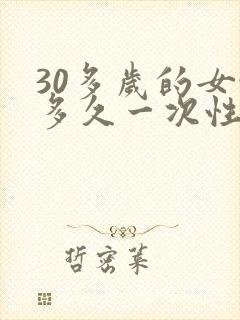 30多歲的女
多久一次性
哲密萊